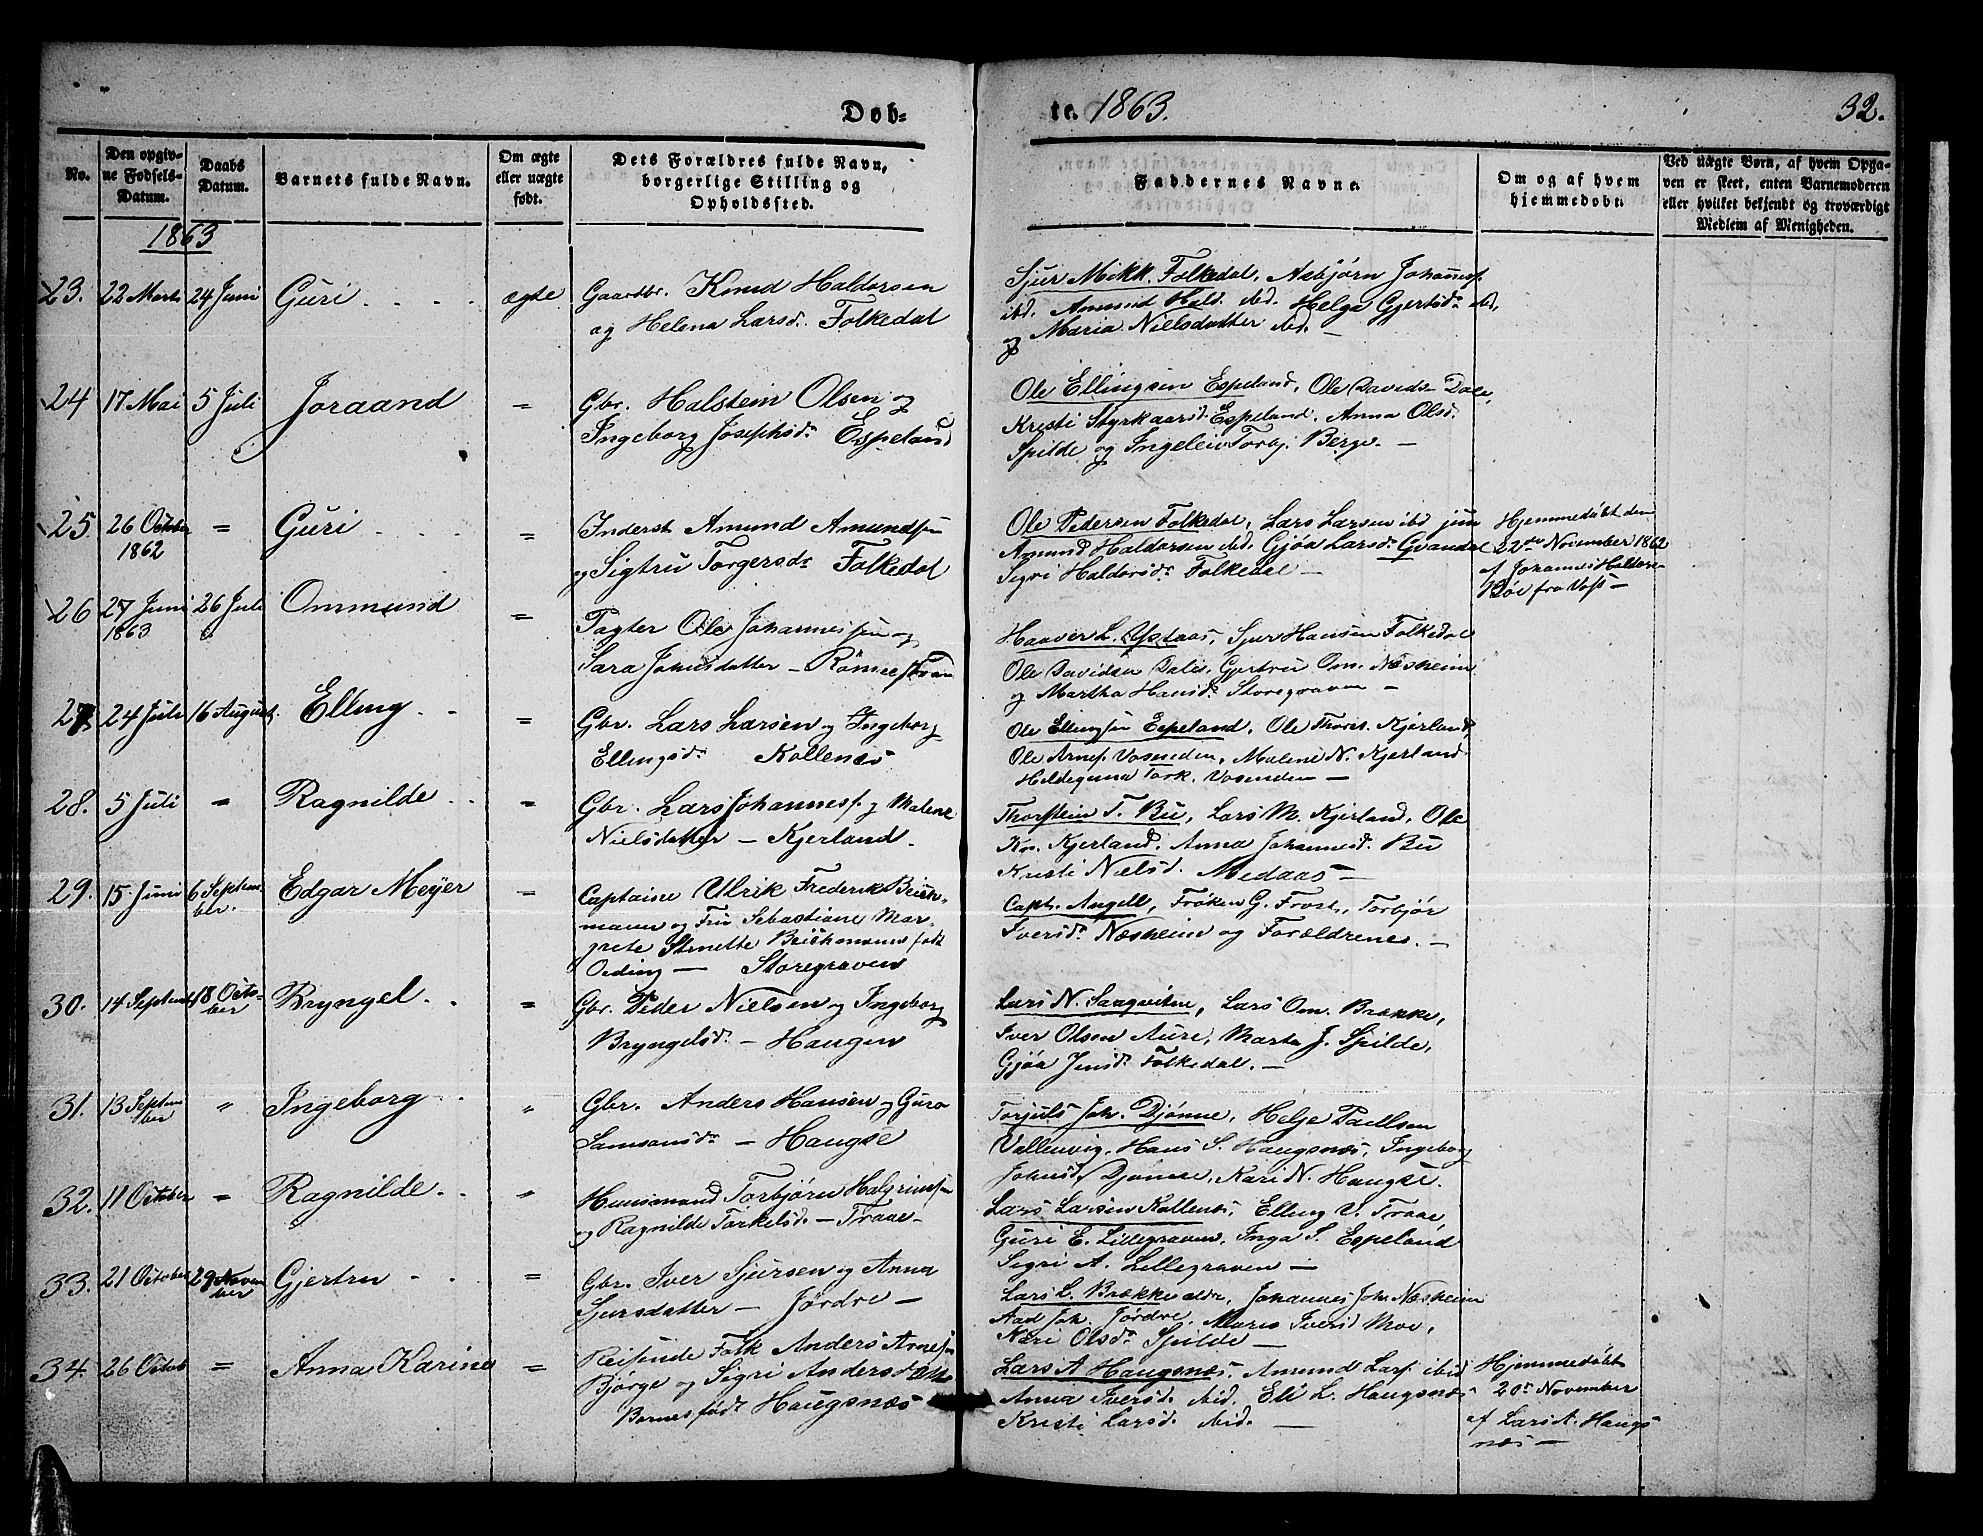 Døb-
te. 1863.
32.
No.
Den opgiv-
ne Fødsels-
Datum.
Daabs
Datum.
Barnets fulde Navn.
Om ægte
eller uægte
født.
Dets Forældres fulde Navn,
borgerlige Stilling og
Opholdssted.
Faddernes Navne.
Om og af hvem
hjemmedøbt.
Ved uægte Børn, af hvem Opga-
ven er skeet, enten Barnemoderen
eller hvilket bekjendt og troværdigt
Medlem af Menigheden.
1863
23. 22 Marts 24 Juni Guri ægte Gaardbr. Knud Haldorsen
og Helena Larsd. Folkedal
Sjur Mikk. Folkedal, Asbjørn Johanness.
ibd. Amund Hald. ibd. Helga Gjertsd. ibd.
og Maria Nielsdatter ibd. —
24 17 Mai 5 Juli Joraand = Gbr. Halstein Olsen og
Ingeborg Josephsdr Espeland
Ole Ellingsen Espeland, Ole Davids. Dale,
Kristi Styrkaarsd. Espeland. Anna Olsd.
Spilde og Ingeleiv Torbj. Berge. —
25 26 October
1862
= Guri = Inderst Amund Amundsen
og Sigtru Torgersdr Folkedal
Ole Pedersen Folkedal, Lars Larsen ibd jun
Amund Haldorsen ibd. Gjøa Larsdr Gvandal
Sigri Haldorsdr Folkedal —
Hjemmedøbt den
22de November 1862
af Johannes Haldors-
Bøe fra Vos —
26 27 Juni
1863
26 Juli Ommund = Pagter Ole Johannessen og
Sara Johnsdatter —
Haaver L. Ystaas, Sjur Hansen Folkedal
Ole Davidsen Dale, Gjertru Om. Næsheim
og Martha Hansdr Storegraven —
27 24 Juli 16 August Elling = Gbr. Lars Larsen og Ingeborg
Ellingsdr Kollenæs
Ole Ellingsen Espeland, Ole Thorst. Kjerland,
Ole Arnes. Vosneden, Malene N. Kjerland
Hildeguna Tork. Vosenden —
28. 5 Juli = Ragnilde = Gbr. Lars Johanness. og Malene
Nielsdatter — Kjerland.
Thorstein T. Bu, Lars M. Kjerland, Ole
Kn. Kjerland. Anna Johannesd. Bu
Kristi Nielsd. Medaas —
29. 15 Juni 6 Septem-
ber.
Edgar Meyer = Captaine Ulrik Frederik Beich-
mann og Fru Sebastiane Mar-
grete Stenette Beichmann født
Oeding — Storegraven
Capt. Angell, Frøken G. Frost, Torbjør
Iversdr Næsheim og Forældrene. —
30. 14 Septemb 18 Octo-
ber
Bryngel = Gbr. Peder Nielsen og Ingeborg
Bryngelsdr — Haugen
Lars N. Saaqvitne, Lars Om. Brække,
Iver Olsen Aure, Marta J. Spilde,
Gjøa Jensdr Folkedal. —
31. 13 Septem
ber
" Ingeborg " Gbr. Anders Hansen og Guro
Samsonsdr — Haugse
Torjuls Joh. Djønne, Helje Paellsen
Vallevig, Hans S. Haugsnæs, Ingeborg
Johnsd. Djønne, Kari N. Haugse.
32. 11 October = Ragnilde " Huusmand Torbjørn Halgrimsen
og Ragnilde Torkelsd. — Traae —
Lars Larsen Kollenæs, Elling V. Traae,
Guri E. Lillegraven, Inga S. Espeland
Sigri A. Lillegraven —
33. 21 October 29 Novem
ber
Gjertru = Gbr. Iver Sjursen og Anna
Sjursdatter — Jørdre —
Lars L. Brække, Johannes Joh. Næsheim
Aad Joh. Jørdre. Maris Iversd Moe,
Kari Olsdr Spilde —
34. 26 Octob = Anna Karine = Reisende Folk Anders Arnesen
Bjørge og Sigri Andersdatt.
Barnes født Haugsnæs
Lars A Haugsnæs. Amund Lars. ibid
Anna Iversd. ibid. Eli L. Haugsnæs
Kristi Larsd. ibid. —
Hjemmedøbt
20de November
af Lars A. Haugs
næs —